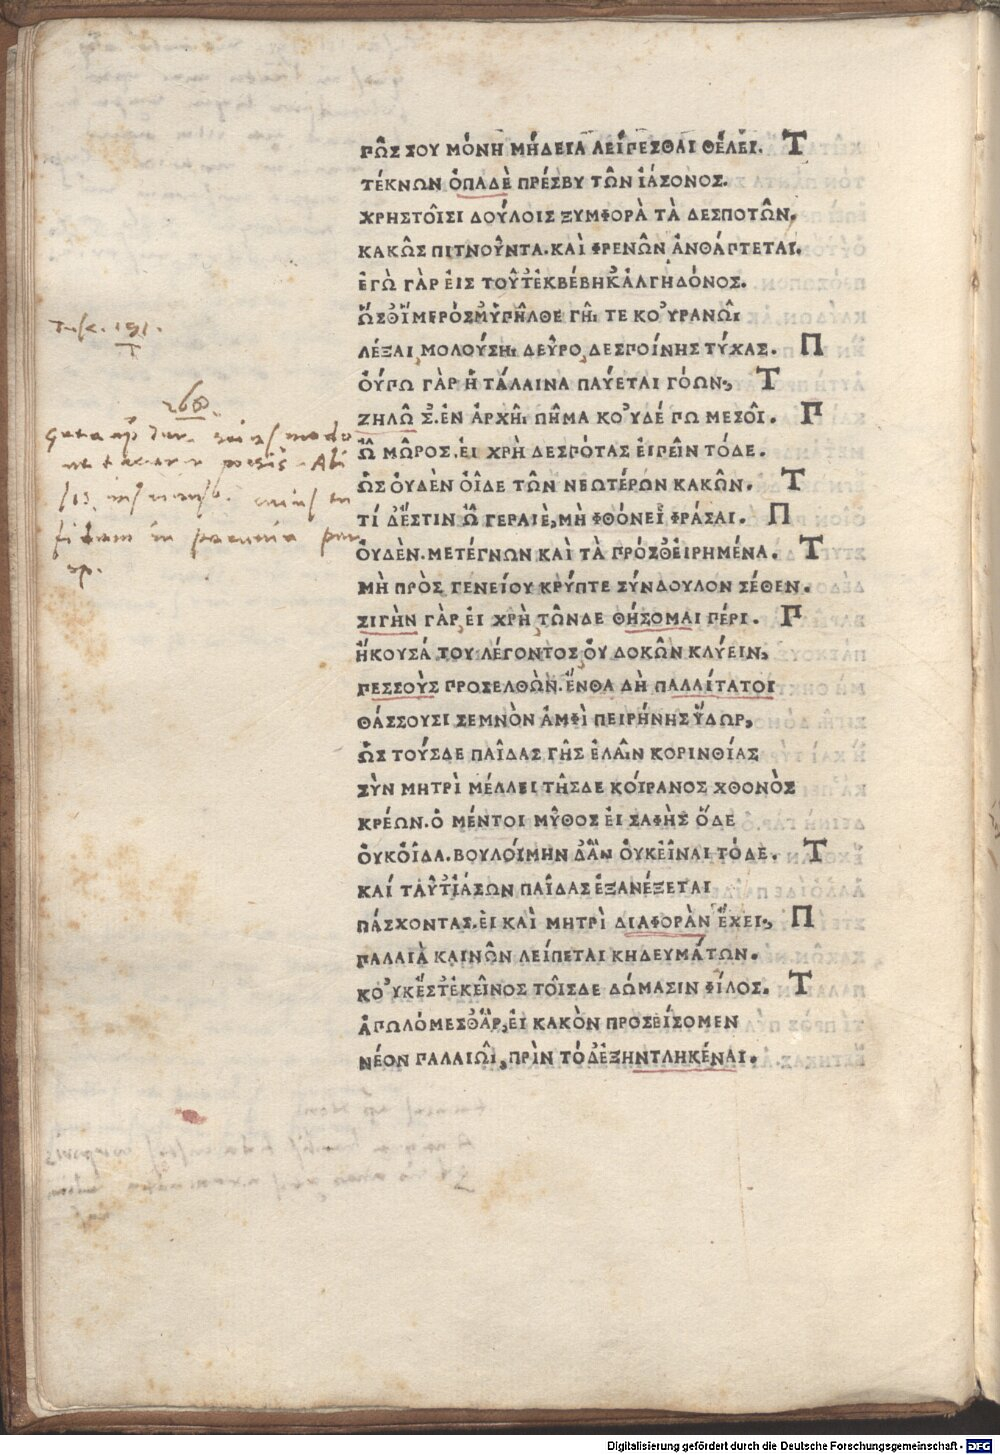 ΠΩ͂Σ ΣΟΥ ΜΌΝΗ ΜΉΔΕΙΑ ΛΕΊΠΕΣΘΑΙ ΘΈΛΕΙ. Τ
ΤΈΚΝΩΝ ὈΠΑΔῈ ΠΡΈΣΒΥ ΤΩ͂Ν ἸΆΣΟΝΟΣ.
ΧΡΗΣΤΟΙ͂ΣΙ ΔΟΎΛΟΙΣ ΞΥΜΦΟΡᾺ ΤᾺ ΔΕΣΠΟΤΩ͂Ν,
ΚΑΚΩ͂Σ ΠΙΤΝΟΥ͂ΝΤΑ. ΚΑῚ ΦΡΕΝΩ͂Ν ἈΝΘΆΠΤΕΤΑΙ.
ἘΓῺ ΓᾺΡ ἘΙΣ ΤΟΥ͂Τ᾽ἘΚΒΈΒΗΚ᾽ἈΛΓΗΔΌΝΟΣ.
ὭΣΘ᾽ἽΜΕΡΌΣ Μ᾽ὙΠΗ͂ΛΘΕ ΓΗ͂Ι ΤΕ ΚΟ᾽ΥΡΑΝΩ͂Ι
ΛΈΞΑΙ ΜΟΛΟΎΣΗΙ ΔΕΥ͂ΡΟ ΔΕΣΠΟΊΝΗΣ ΤΎΧΑΣ. Π
ὀΎΠΩ ΓᾺΡ Ἡ ΤΆΛΑΙΝΑ ΠΑΎΕΤΑΙ ΓΌΩΝ; Τ
ΖΗΛΩ͂ Σ᾽. ἐΝ ἈΡΧΗ͂Ι ΠΗ͂ΜΑ ΚΟ᾽ΥΔΈ ΠΩ ΜΕΣΟΙ͂. Π
Ὦ ΜΩ͂ΡΟΣ. ἐΙ ΧΡῊ ΔΕΣΠΌΤΑΣ ἐΙΠΕΙ͂Ν ΤΌΔΕ.
ὩΣ ὀΥΔῈΝ ὀΙ͂ΔΕ ΤΩ͂Ν ΝΕΩΤΈΡΩΝ ΚΑΚΩ͂Ν. Τ
ΤΊ Δ᾽ἜΣΤΙΝ Ὦ ΓΕΡΑΙΈ, ΜῊ ΦΘΌΝΕΙ ΦΡΆΣΑΙ. Π
ὀΥΔῈΝ. ΜΕΤΈΓΝΩΝ ΚΑῚ ΤᾺ ΠΡΌΣΘ᾽ἐΙΡΗΜΈΝΑ. Τ
ΜῊ ΠΡῸΣ ΓΕΝΕΊΟΥ ΚΡΎΠΤΕ ΣΎΝΔΟΥΛΟΝ ΣΈΘΕΝ.
ΣΙΓῊΝ ΓᾺΡ ἐΙ ΧΡῊ ΤΩ͂ΝΔΕ ΘΉΣΟΜΑΙ ΠΈΡΙ. Π
ἬΚΟΥΣΆ ΤΟΥ ΛΈΓΟΝΤΟΣ ὀΥ ΔΟΚΩ͂Ν ΚΛΎΕΙΝ,
ΠΕΣΣΟῪΣ ΠΡΟΣΕΛΘΏΝ. ἜΝΘΑ ΔῊ ΠΑΛΑΊΤΑΤΟΙ
ΘΆΣΣΟΥΣΙ ΣΕΜΝῸΝ ἈΜΦῚ ΠΕΙΡΉΝΗΣ ὝΔΩΡ,
ὩΣ ΤΟΎΣΔΕ ΠΑΙ͂ΔΑΣ ΓΗ͂Σ ἘΛΑ͂ΙΝ ΚΟΡΙΝΘΊΑΣ
ΣῪΝ ΜΗΤΡῚ ΜΈΛΛΕΙ ΤΗ͂ΣΔΕ ΚΟΊΡΑΝΟΣ ΧΘΟΝῸΣ
ΚΡΈΩΝ. Ὁ ΜΈΝΤΟΙ ΜΥ͂ΘΟΣ ἐΙ ΣΑΦῊΣ ὍΔΕ
ὀΥΚ ὀΙ͂ΔΑ. ΒΟΥΛΟΊΜΗΝ Δ᾽ἊΝ ὀΥΚ ἐΙ͂ΝΑΙ ΤΌΔΕ. Τ
ΚΑΊ ΤΑΥ͂Τ᾽ἸΆΣΩΝ ΠΑΙ͂ΔΑΣ ἘΞΑΝΈΞΕΤΑΙ
ΠΆΣΧΟΝΤΑΣ. ἐΙ ΚΑῚ ΜΗΤΡῚ ΔΙΑΦΟΡᾺΝ ἜΧΕΙ; Π
ΠΑΛΑΙᾺ ΚΑΙΝΩ͂Ν ΛΕΊΠΕΤΑΙ ΚΗΔΕΥΜΆΤΩΝ.
ΚΟ᾽ΥΚ ἜΣΤ᾽ἘΚΕΙ͂ΝΟΣ ΤΟΙ͂ΣΔΕ ΔΏΜΑΣΙΝ ΦΊΛΟΣ. Τ
ἈΠΩΛΌΜΕΣΘ᾽ἌΡ, ἐΙ ΚΑΚῸΝ ΠΡΟΣΘΊΣΟΜΕΝ
ΝΈΟΝ ΠΑΛΑΙΩ͂Ι, ΠΡῚΝ ΤΌΔ᾽ἘΞΗΝΤΛΗΚΈΝΑΙ.
Tusc. 191.
268.
Digitalisierung gefördert durch die Deutsche Forschungsgemeinschaft - DFG